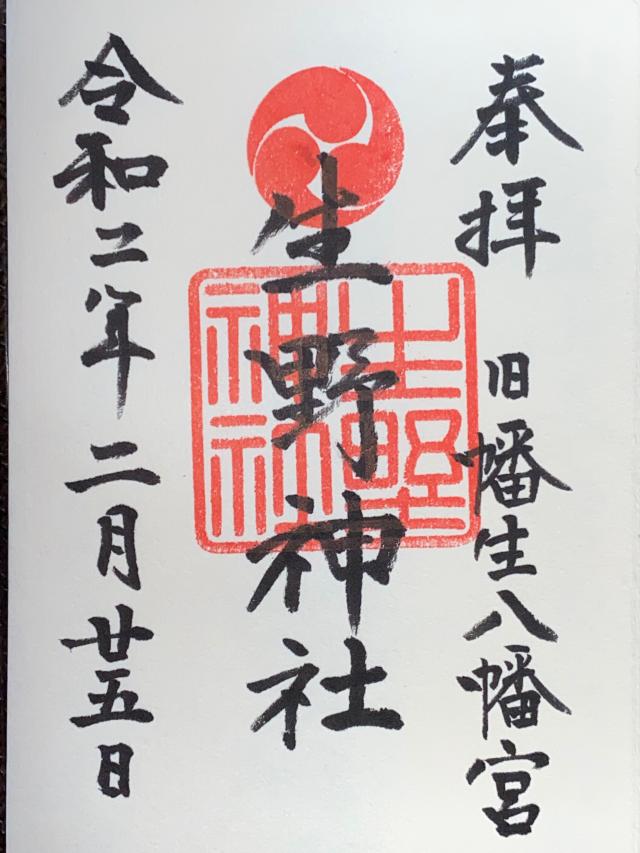 奉拝 旧幡生八幡宮
生野神社
生野神社
令和二年二月廿五日